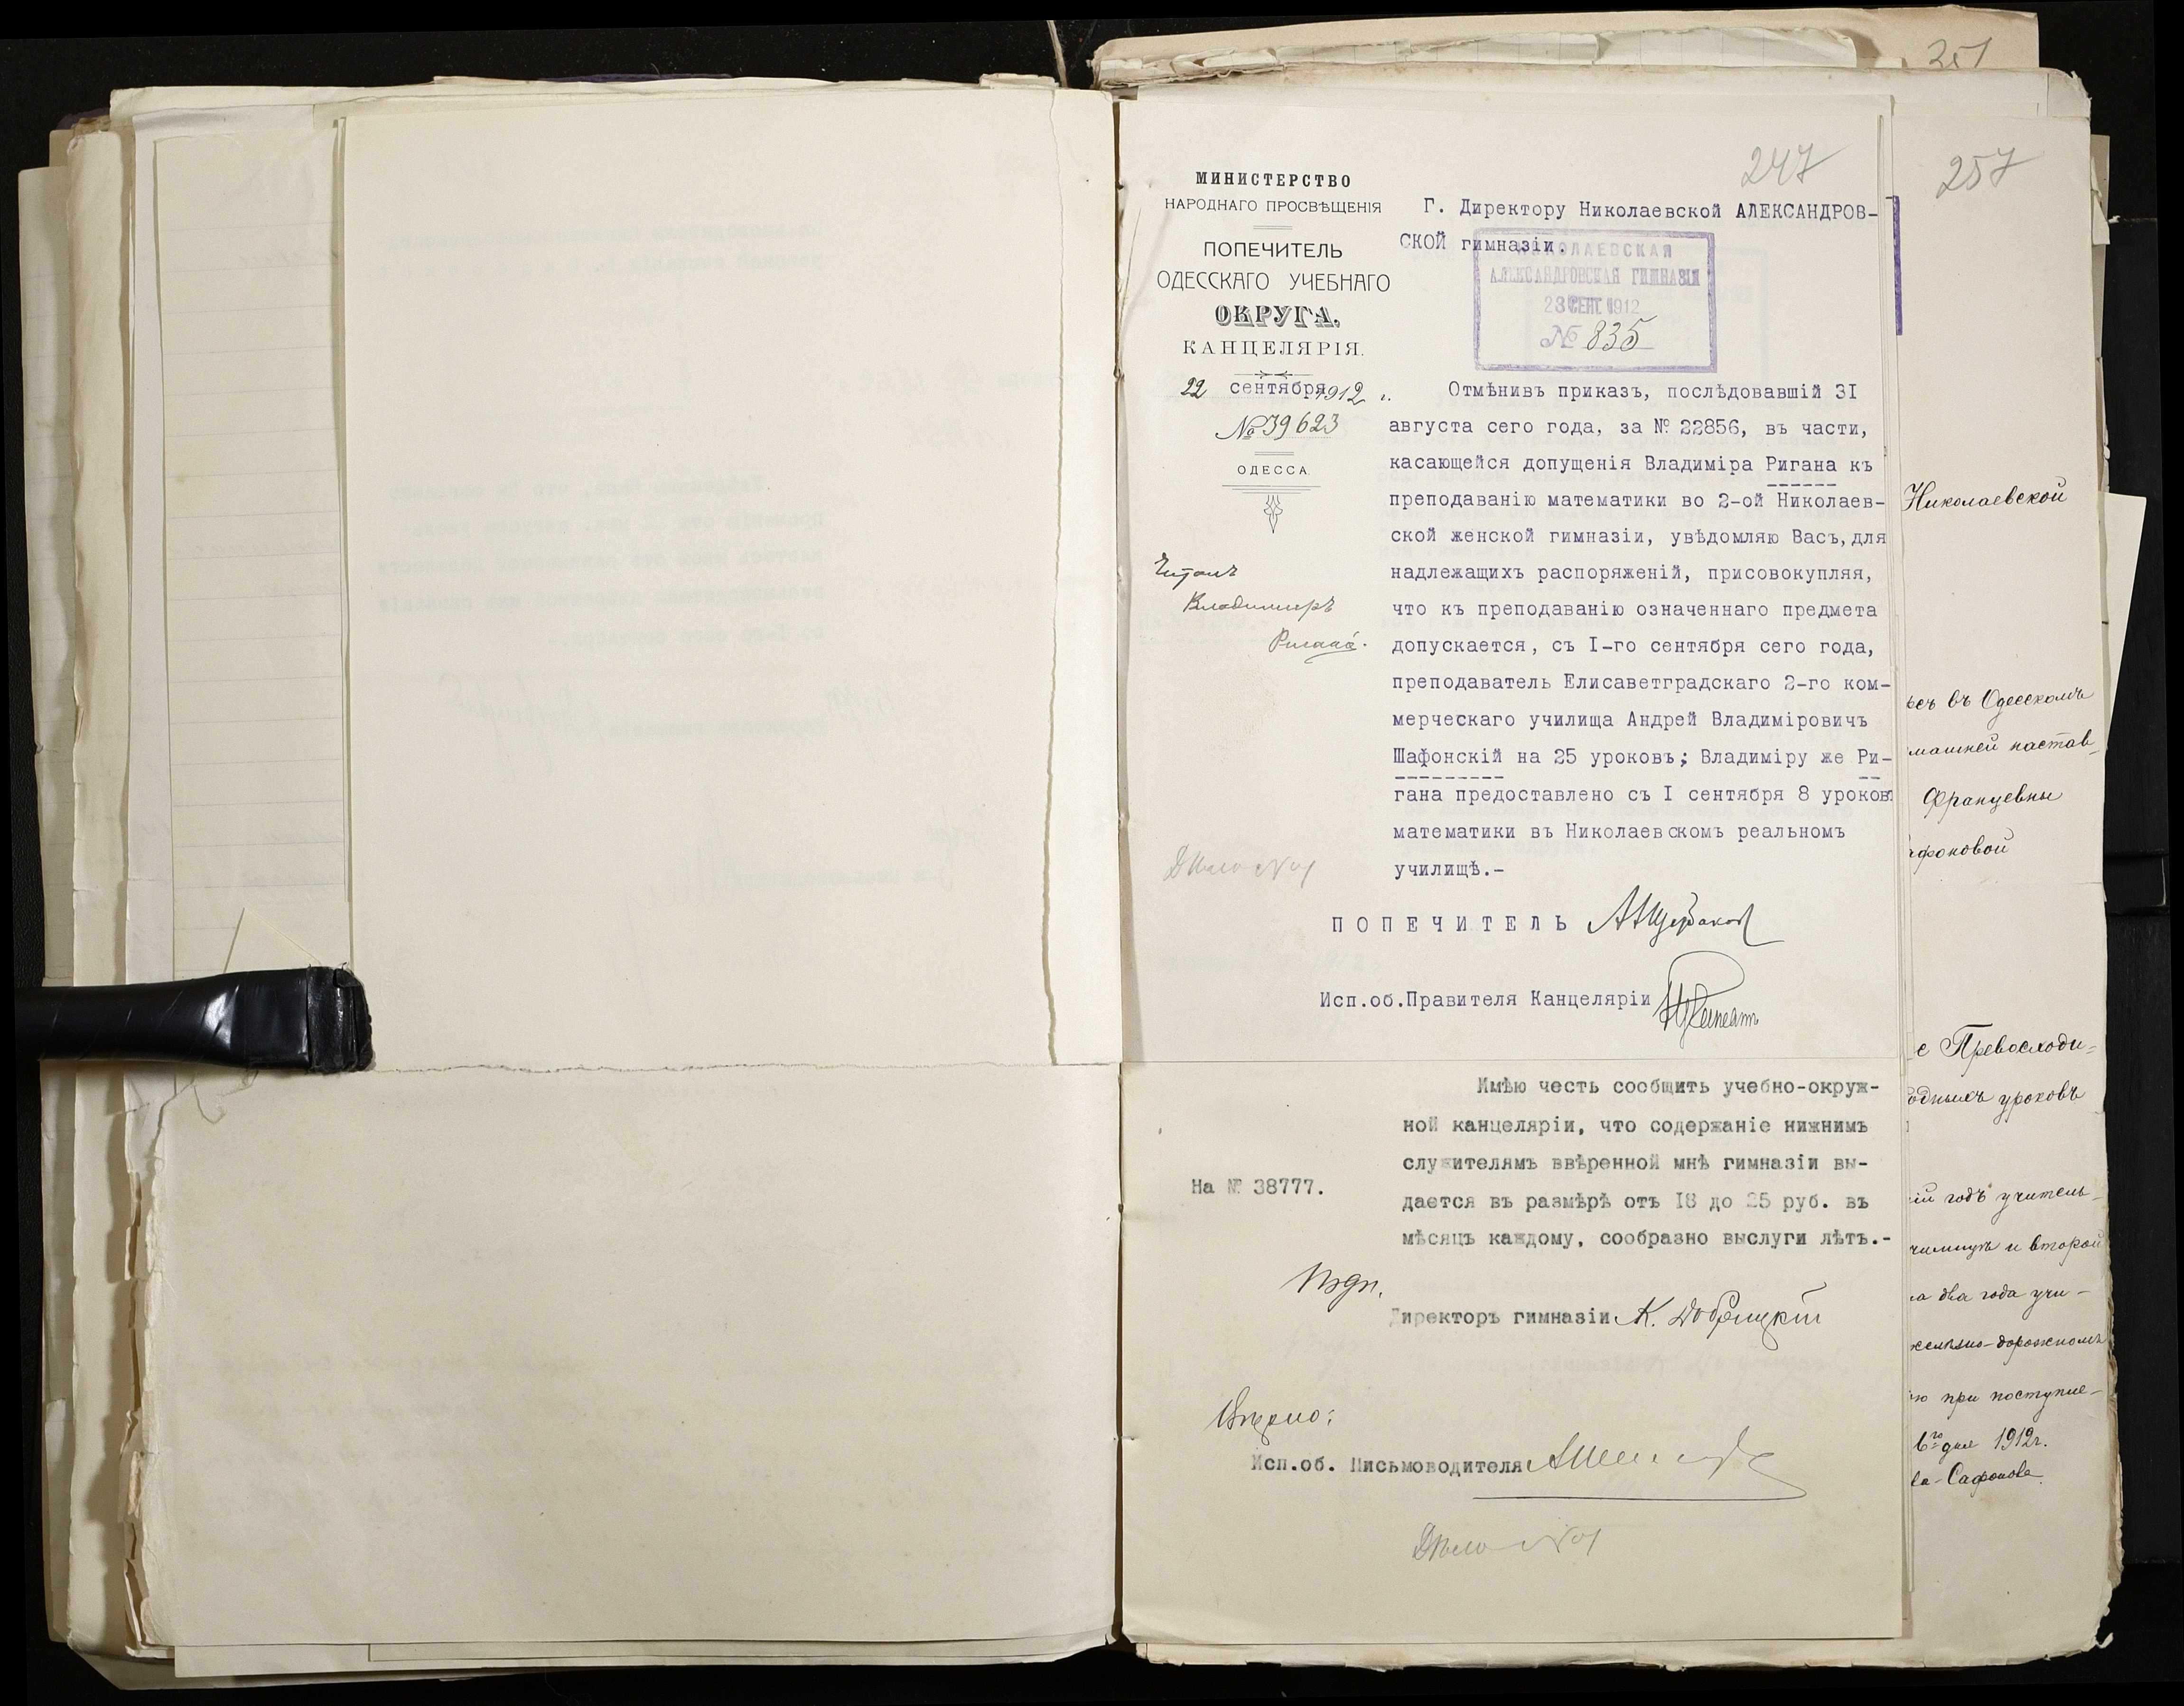 251
247
257
МИНИСТЕРСТВО
НАРОДНАГО ПРОСВѢЩЕНІЯ
ПОПЕЧИТЕЛЬ
ОДЕССКАГО УЧЕБНАГО
ОКРУГА.
КАНЦЕЛЯРІЯ.
22 сентября 1912 г.
№ 39623
ОДЕССА.
Читалъ
Владимиръ
Ригана.
Дѣло №
Г. Директору Николаевской АЛЕКСАНДРОВ-
СКОЙ гимназіи.
НИКОЛАЕВСКАЯ
АЛЕКСАНДРОВСКАЯ ГИМНАЗІЯ
СЕНТ. 1912
№ 835
Отмѣнивъ приказъ, послѣдовавшій 3I
августа сего года, за № 22856, въ части,
касающейся допущенія Владиміра Ригана къ
преподаванію математики во 2-ой Николаев-
ской женской гимназіи, увѣдомляю Васъ, для
надлежащихъ распоряженій, присовокупляя,
что къ преподаванію означеннаго предмета
допускается, съ I-го сентября сего года,
преподаватель Елисаветградскаго 2-го ком-
мерческаго училища Андрей Владиміровичъ
Шафонскій на 25 уроковъ; Владиміру же Ри-
гана предоставлено съ I сентября 8 уроковъ
математики въ Николаевскомъ реальномъ
училищѣ.-
ПОПЕЧИТЕЛЬ АЩербаков
Исп.об.Правителя Канцеляріи
Имѣю честь сообщить учебно-окруж-
ной канцеляріи, что содержаніе нижнимъ
служителямъ ввѣренной мнѣ гимназіи вы-
дается въ размѣрѣ отъ I8 до 25 руб. въ
мѣсяцъ каждому, сообразно выслуги лѣтъ.-
На № 38777.
Подп.
Директоръ гимназіи К. Добрицкій
Вѣрно:
Исп.об. Письмоводителя
Дѣло №
Николаевской
въ Одесскомъ
настав-
Францевны
Превосходи=
уроковъ
годъ учитель-
и второй
два года учи-
дорожномъ
при поступле-
дня 1912г.
Сафонова.